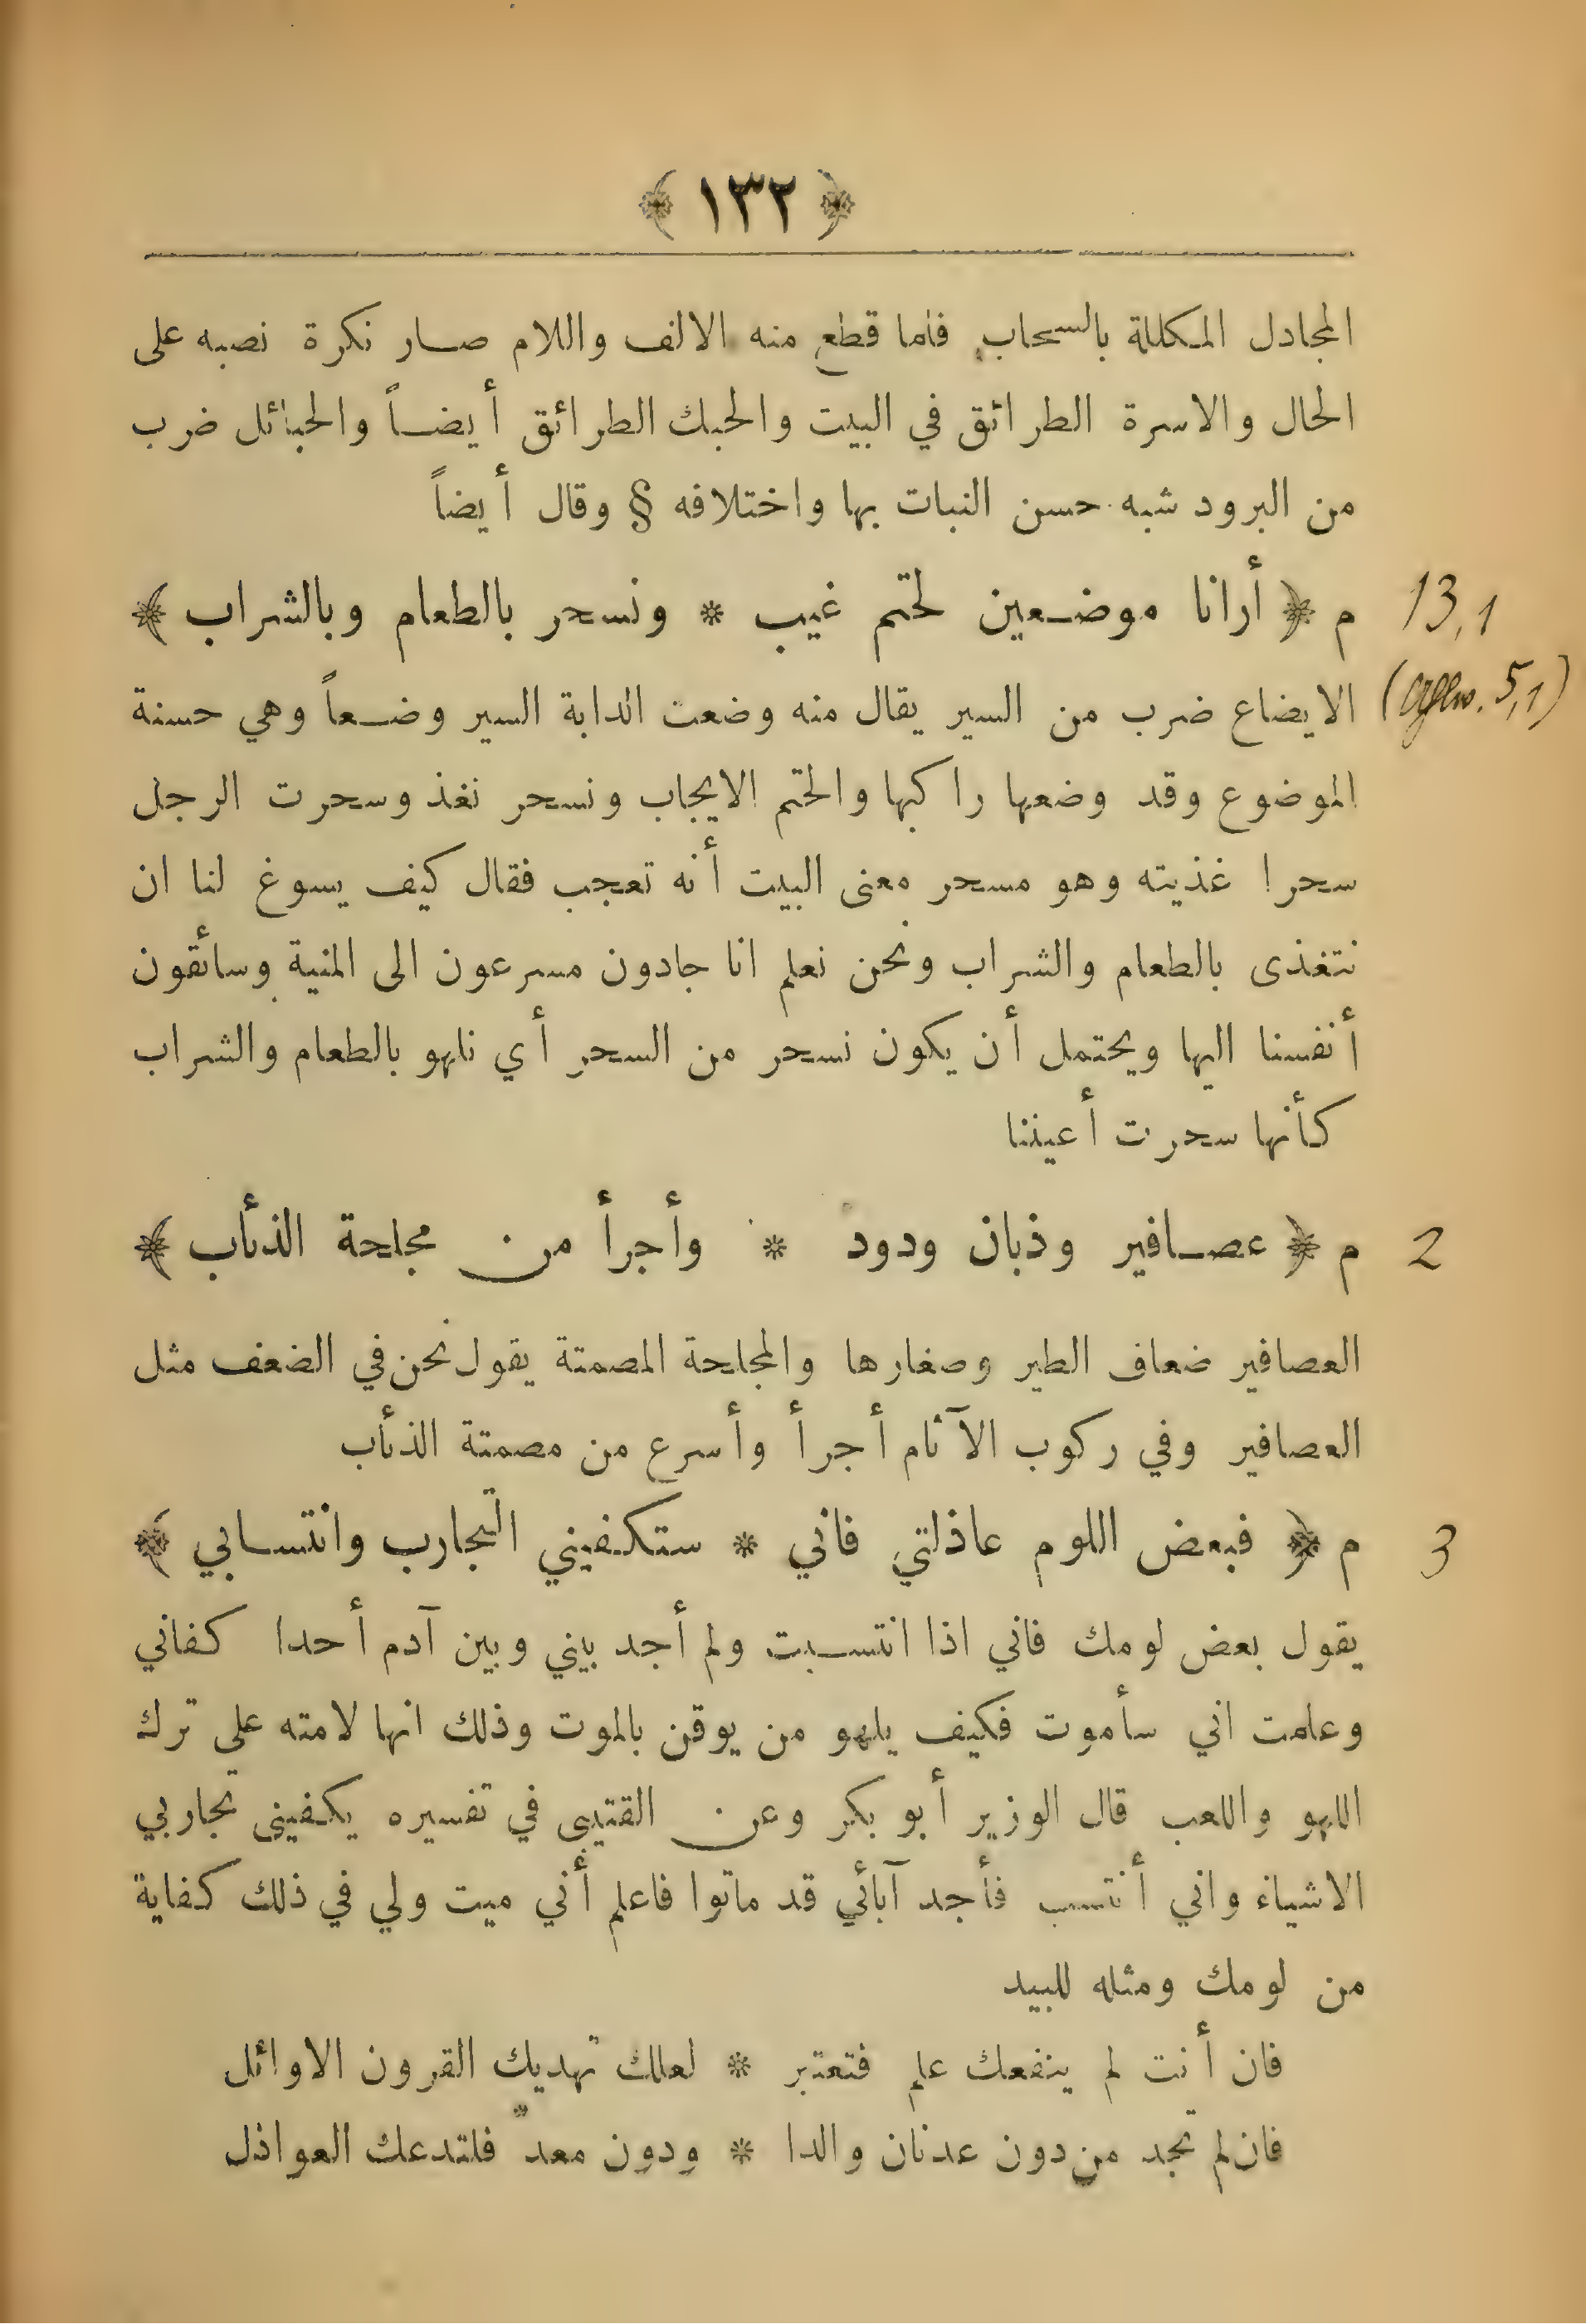 ﴿ ١٣٢ ﴾
المجادل المكللة بالسحاب فلما قطع منه الالف واللام صار نكرة نصبه على
الحال والاسرة الطرائق في البيت والحبك الطرائق أيضاً والحبائل ضرب
من البرود شبه حسن النبات بها واختلافه § وقال أيضاً
م ﴿ أرانا موضعين لحتم غيب * ونسحر بالطعام وبالشراب ﴾ 13,1
الايضاع ضرب من السير يقال منه وضعت الدابة السير وضعاً وهي حسنة (Ahlw. 5,1)
الموضوع وقد وضعها راكبها والحتم الايجاب ونسحر نغذ وسحرت الرجل
سحرا غذيته وهو مسحر معنى البيت أنه تعجب فقال كيف يسوغ لنا ان
نتغذى بالطعام والشراب ونحن نعلم انا جادون مسرعون الى المنية وسائقون
أنفسنا اليها ويحتمل أن يكون نسحر من السحر أي نلهو بالطعام والشراب
كأنها سحرت أعيننا
م ﴿ عصافير وذبان ودود * وأجرأ من مجلحة الذئاب ﴾ 2
العصافير ضعاف الطير وصغارها والمجلحة المصمتة يقول نحن في الضعف مثل
العصافير وفي ركوب الآثام أجرأ وأسرع من مصمتة الذئاب
م ﴿ فبعض اللوم عاذلتي فاني * ستكفيني التجارب وانتسابي ﴾ 3
يقول بعض لومك فاني اذا انتسبت ولم أجد بيني وبين آدم أحدا كفاني
وعلمت اني سأموت فكيف يلهو من يوقن بالموت وذلك انها لامته على ترك
اللهو واللعب قال الوزير أبو بكر وعن القتيبي في تفسيره يكفيني تجاربي
الاشياء واني أنتسب فأجد آبائي قد ماتوا فاعلم أني ميت ولي في ذلك كفاية
من لومك ومثله للبيد
فان أنت لم ينفعك علم فتعتبر * لعلك تهديك القرون الاوائل
فان لم تجد من دون عدنان والدا * ودون معد فلتدعك العواذل